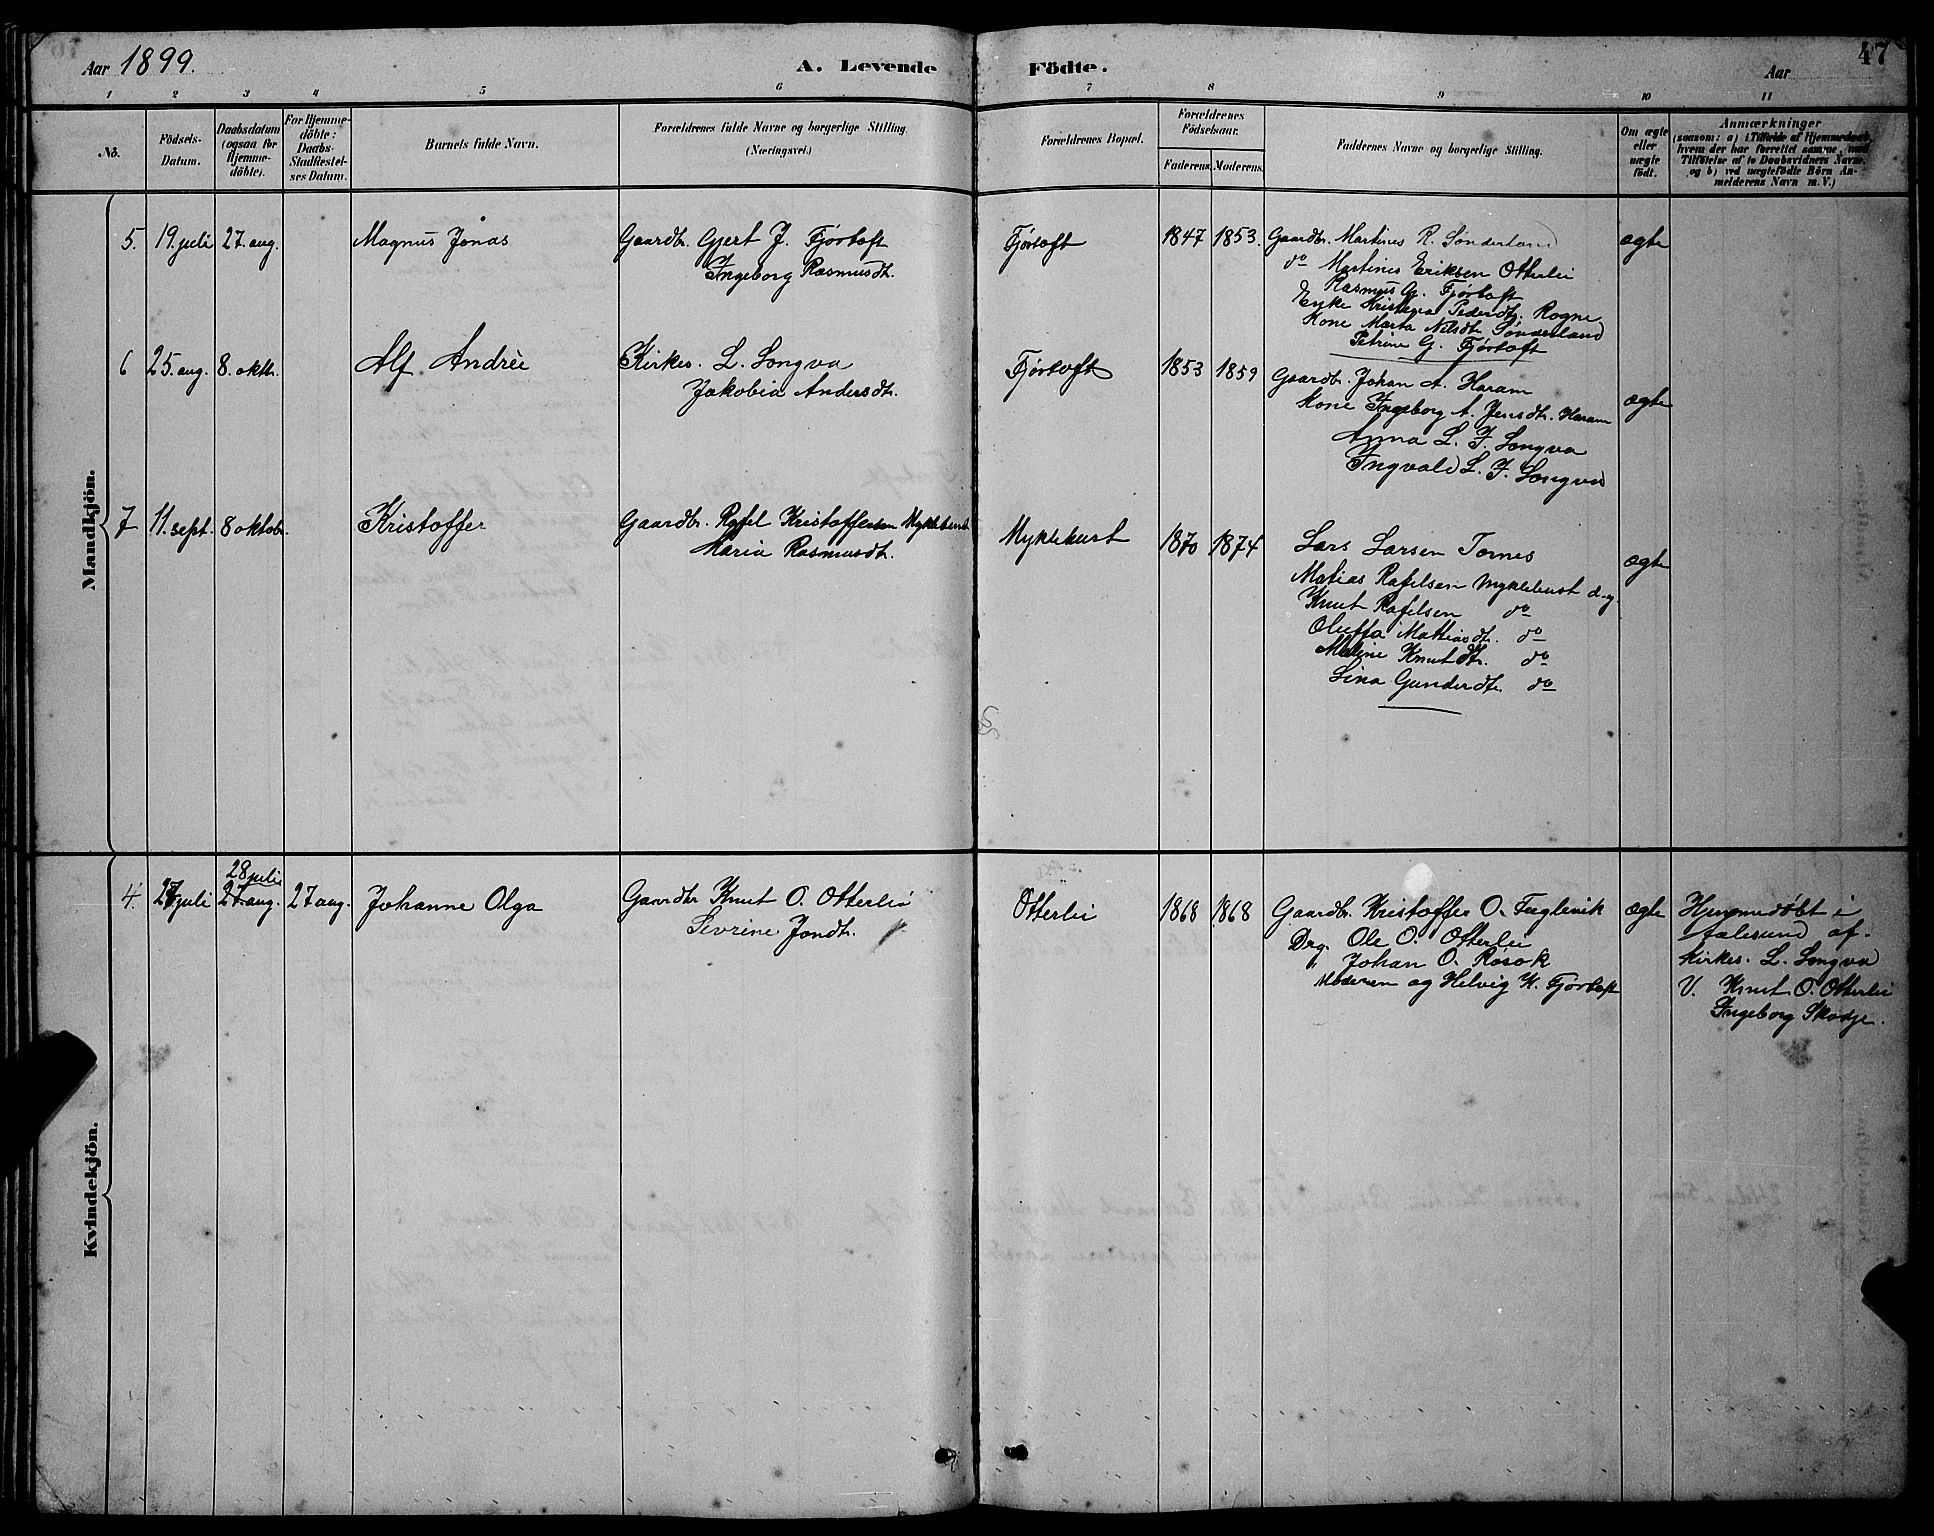 Aar 1899.
A. Levende Födte.
Aar
47
1 2 3 4 5 6 7 8 9 10 11
No.
Födsels-Datum.
Daabsdatum (ogsaa for Hjemme-döbte).
For Hjemme-döbte: Daabs-Stadfæstel-ses Datum.
Barnets fulde Navn.
Forældrenes fulde Navne og borgerlige Stilling.
(Næringsvei.)
Forældrenes Bopæl.
Forældrenes Födselsaar.
Faderens. Moderens.
Faddernes Navne og borgerlige Stilling.
Om ægte eller uægte födt.
Anmærkninger
(saasom: a) i Tilfælde af Hjemmedaab,
hvem der har forrettet samme, med
Tilföielse af to Daabsvidners Navne,
og b) ved uægtefödte Börn An-
melderens Navn m. V.)
Mandkjön.
5. 19. juli 27. aug. Magnus Jonas Gaardbr. Gjert J. Fjørtoft Fjørtoft 1847 1853. Gaardbr. Martines R. Sønderland ægte
Ingeborg Rasmusdt.
do Martines Eriksen Otterlei
Rasmus G. Fjørtoft
Enke Kristiana Pedersdt. Rogne
Kone Marta Nilsdt. Sønderland
Petrine G. Fjørtoft
6 25. aug. 8. oktb. Alf Andrèe Kirkes. L. Longva Fjørtoft 1853 1859 Gaardbr. Johan A. Haram ægte
Jakobia Andersdt.
Kone Ingeborg A. Jensdt. Haram
Anna L. J. Longva
Ingvald L. J. Longva
7 11. sept. 8 oktob. Kristoffer Gaardbr. Rafel Kristoffersen Myklebust Myklebust 1870 1874 Lars Larsen Tornes ægte
Maria Rasmusdt.
Matias Rafelsen Myklebust d.y.
Knut Rafelsen do
Oluffa Mattiasdt. do
Maline Knutdt. do
Lina Gunderdt. do
Kvindekjön.
28 juli
4. 27 juli 27. aug. 27 aug. Johanne Olga Gaardbr Knut O. Otterlei Otterlei 1868 1868 Gaardbr. Kristoffer O. Fuglevik ægte Hjemmedøbt i
Sevrine Jondt.
Drg. Ole O. Otterlei
" Johan O. Røsok
Moderen og Helvig K. Fjørtoft
Aalesund af
Kirkes. L. Longva
V. Knut O. Otterlei
Ingeborg Skodje.